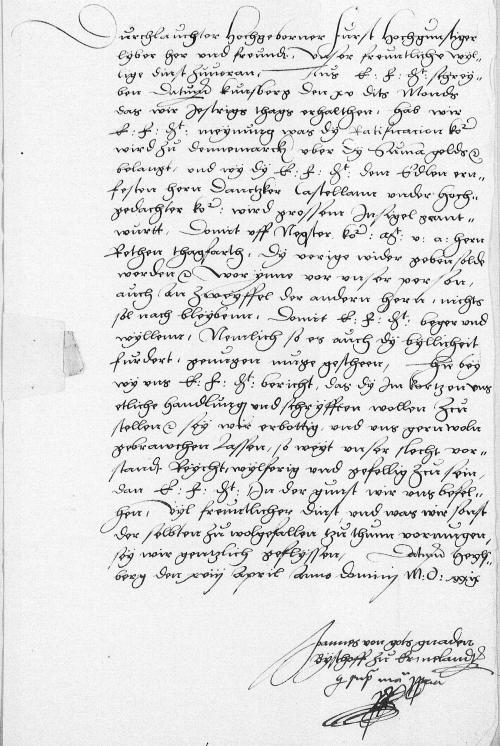 Durchlauchter Hochgeborner Furst Hochgunstiger
lyber her und freundt. Unser freuntliche wyl-
lige dinst zuuoran. Aus E: F: Gt: schrey-
ben datum kunsberg den xv dits Monds
das wir Jestrigs thags erhalthen, hab wir
E: F: Gt: meynung was dy Ratificacion kor
wird zu dennemarck uber dy Summa geldes
belangt, und wy dy E: F: Gt: dem Edlen ern-
festen hern Dantzker Castellann under hoch-
gedachter kor: wird grossem Insigel
Domit uff Negster kor: Mt: u: a: hern
Rethen thagfarth, dy verige wider
werden Wor ynne vor unser person,
auch an zweyffel der andern hern, nichts
sol nach bleyben, Domit E: F: Gt: beger und
wyllenn, Nemlich so es auch dy byllicheit
furdert, genugen muge gescheen, Hu bey
wy uns E: F: Gt: bericht, das dy Im kortzen uns
etliche handlung und schryfften wollen zcu
stellen sey wir erbottig, und uns gern woln
gebrawchen lassen, so weyt unser slecht vor-
standt Reycht, wylferig und gefellig zcu sein,
dan E: F: Gt: In der gunst wir uns befel-
hen, Vyl freuntlicher dinst und was wir sonst
der selbten zu wolgefallen tzu thun vormugen,
sey wir gentzlich geflyssen, Datum
berg den xviij April Anno domini M: D: xxix
Joannes von gots gnaden
Byschoff zu Ermelandt